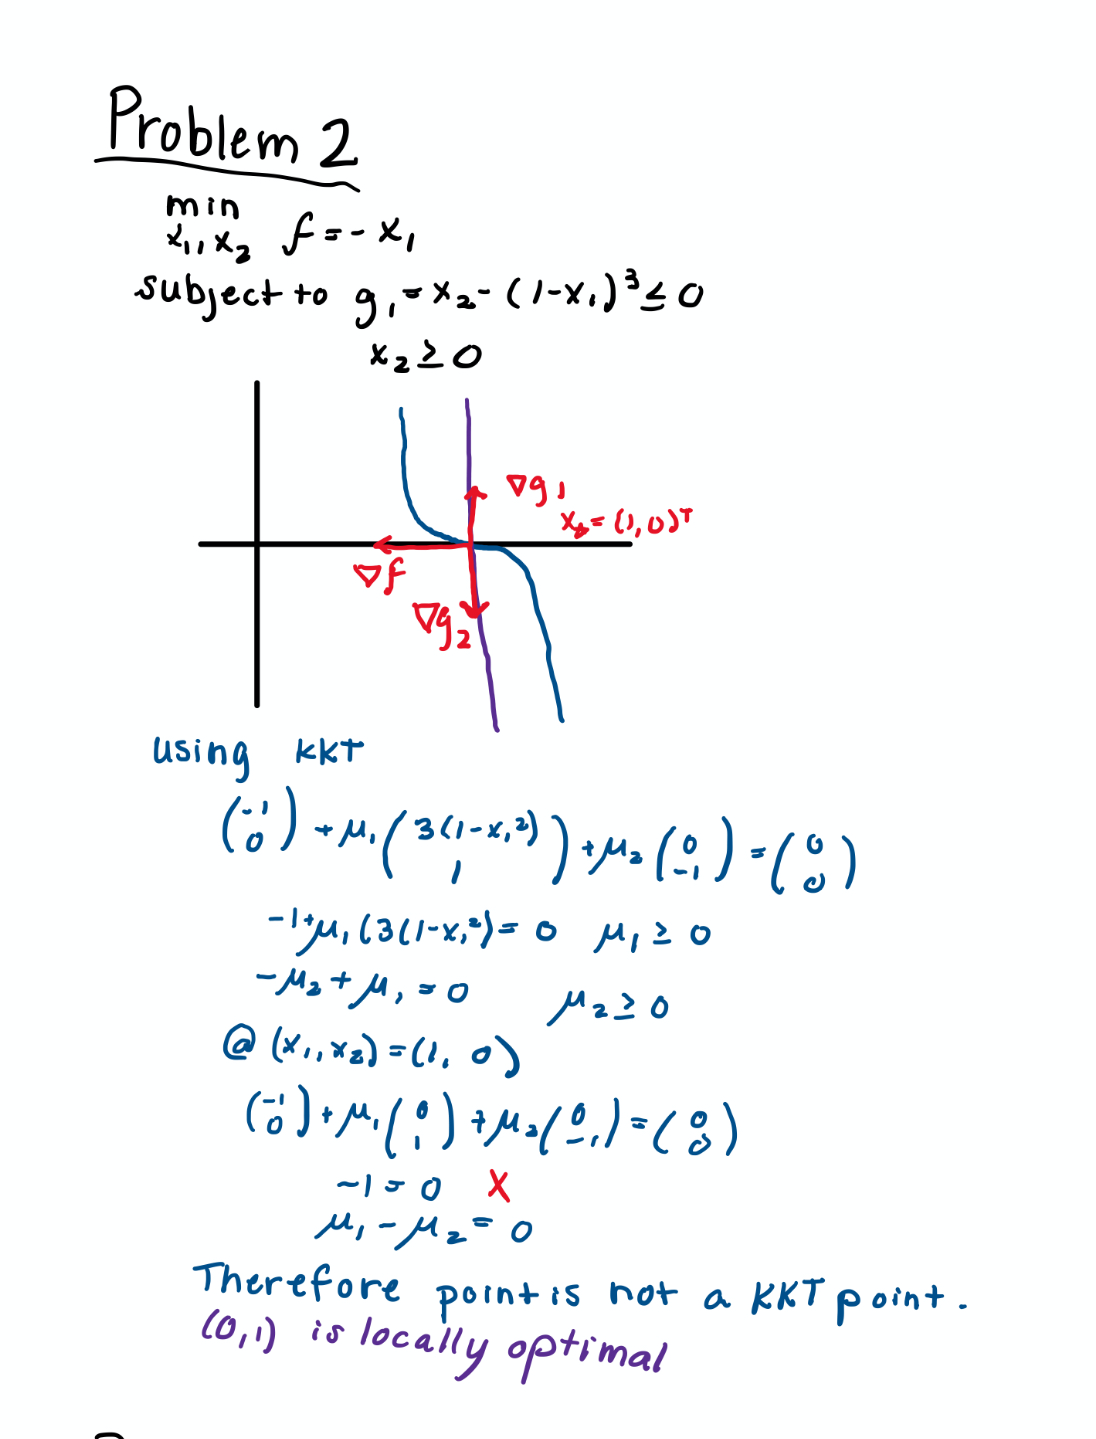 Problem 2
min
x₁,x₂ f = - x₁
subject to g₁ = x₂ - (1-x₁)³ ≤ 0
x₂ ≥ 0
∇g₁
x* = (1,0)ᵀ
∇f
∇g₂
using KKT
(-1 0) + μ₁ (3(1-x₁²) 1) + μ₂ (0 -1) = (0 0)
-1+μ₁(3(1-x₁²) = 0 μ₁ ≥ 0
-μ₂ + μ₁ = 0 μ₂ ≥ 0
@ (x₁,x₂) = (1, 0)
(-1 0) + μ₁ (0 1) + μ₂ (0 -1) = (0 0)
-1 = 0 X
μ₁ - μ₂ = 0
Therefore point is not a KKT point.
(0,1) is locally optimal